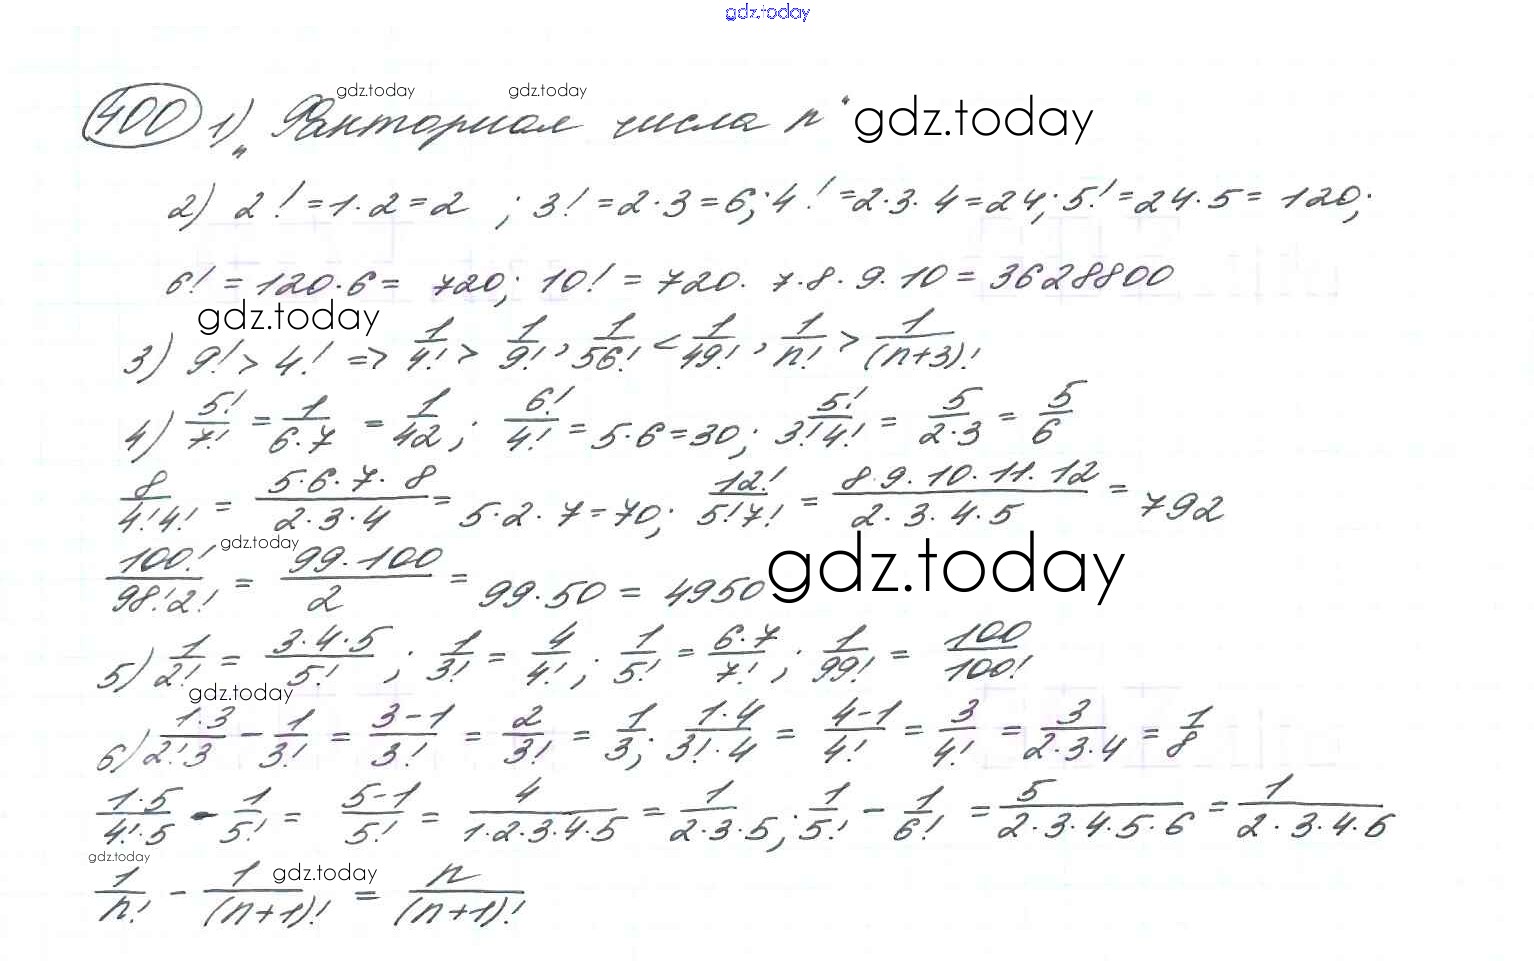 gdz.today
gdz.today gdz.today
400 1) „Факториал числа n“ gdz.today
2) 2! = 1·2 = 2 ; 3! = 2·3 = 6; 4! = 2·3·4 = 24; 5! = 24·5 = 120;
6! = 120·6 = 720; 10! = 720·7·8·9·10 = 3628800
gdz.today
3) 9! > 4! => 1/4! > 1/9!, 1/56! < 1/49!, 1/n! > 1/(n+3)!
4) 5!/7! = 1/6·7 = 1/42; 6!/4! = 5·6 = 30; 5!/3!4! = 5/2·3 = 5/6
8/4!4! = 5·6·7·8/2·3·4 = 5·2·7 = 70; 12!/5!7! = 8·9·10·11·12/2·3·4·5 = 792
gdz.today
100!/98!2! = 99·100/2 = 99·50 = 4950 gdz.today
5) 1/2! = 3·4·5/5! ; 1/3! = 4/4! ; 1/5! = 6·7/7! ; 1/99! = 100/100!
gdz.today
6) 1·3/2!·3 - 1/3! = 3-1/3! = 2/3! = 1/3; 1·4/3!·4 = 4-1/4! = 3/4! = 3/2·3·4 = 1/8
1·5/4!·5 - 1/5! = 5-1/5! = 4/1·2·3·4·5 = 1/2·3·5; 1/5! - 1/6! = 5/2·3·4·5·6 = 1/2·3·4·6
gdz.today gdz.today
1/n! - 1/(n+1)! = n/(n+1)!